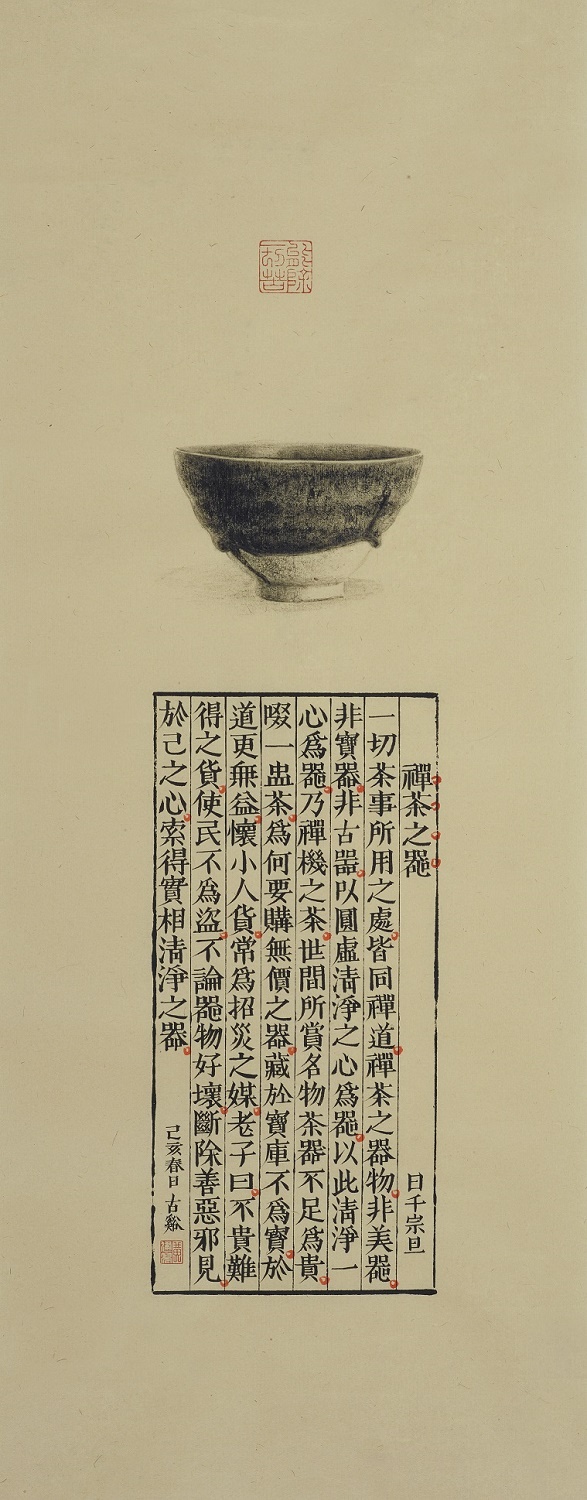 能除一切苦
禪茶之器
日千宗旦
一切茶事所用之處皆同禪道禪茶之器物非美器
非寶器非古器以圓虛清淨之心爲器以此清淨一
心爲器乃禪機之茶世間所賞名物茶器不足爲貴
啜一盅茶爲何要購無價之器藏於寶庫不爲寶於
道更無益懷小人貨常爲招災之媒老子曰不貴難
得之貨使民不爲盜不論器物好壞斷除善惡邪見
於己之心索得實相清淨之器
己亥春日古谿